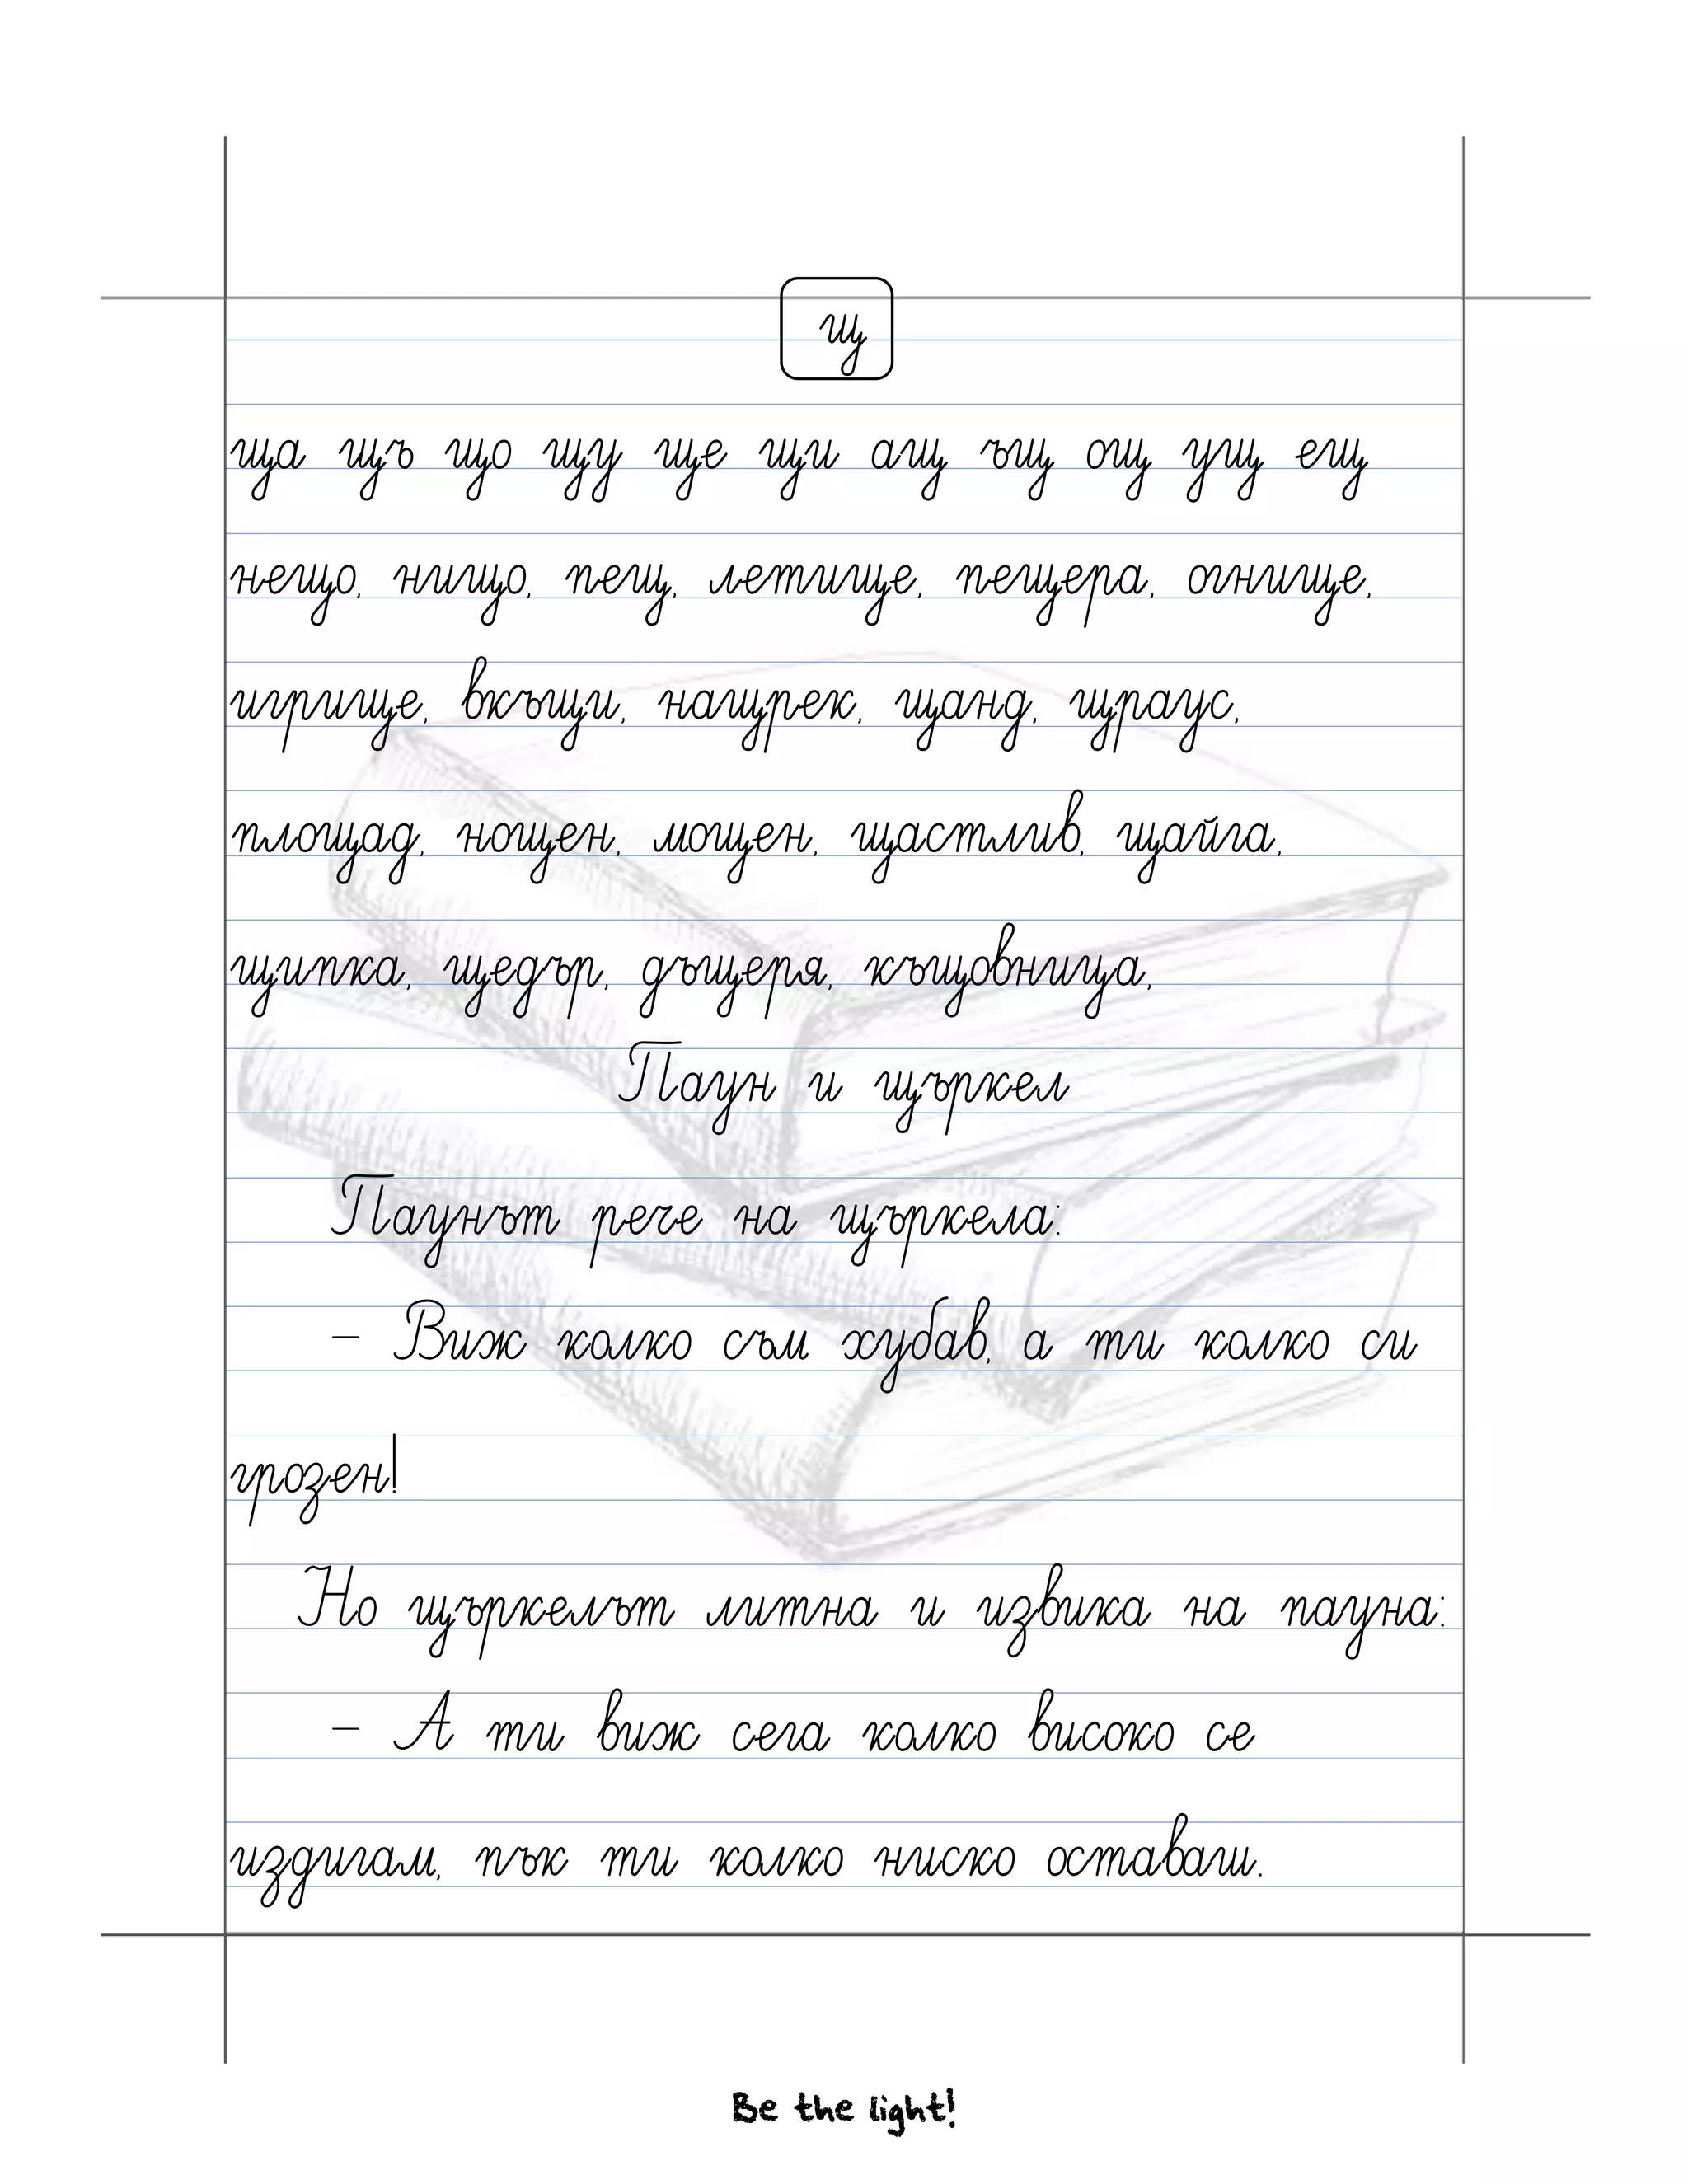 щ
ща щъ що щу ще щи ащ ъщ ощ ущ ещ
нещо, нищо, пещ, летище, пещера, огнище,
игрище, вкъщи, нащрек, щанд, щраус,
площад, нощен, мощен, щастлив, щайга,
щипка, щедър, дъщеря, къщовница,
Паун и щъркел
Паунът рече на щъркела:
– Виж колко съм хубав, а ти колко си
грозен!
Но щъркелът литна и извика на пауна:
– А ти виж сега колко високо се
издигам, пък ти колко ниско оставаш.
Be the light!